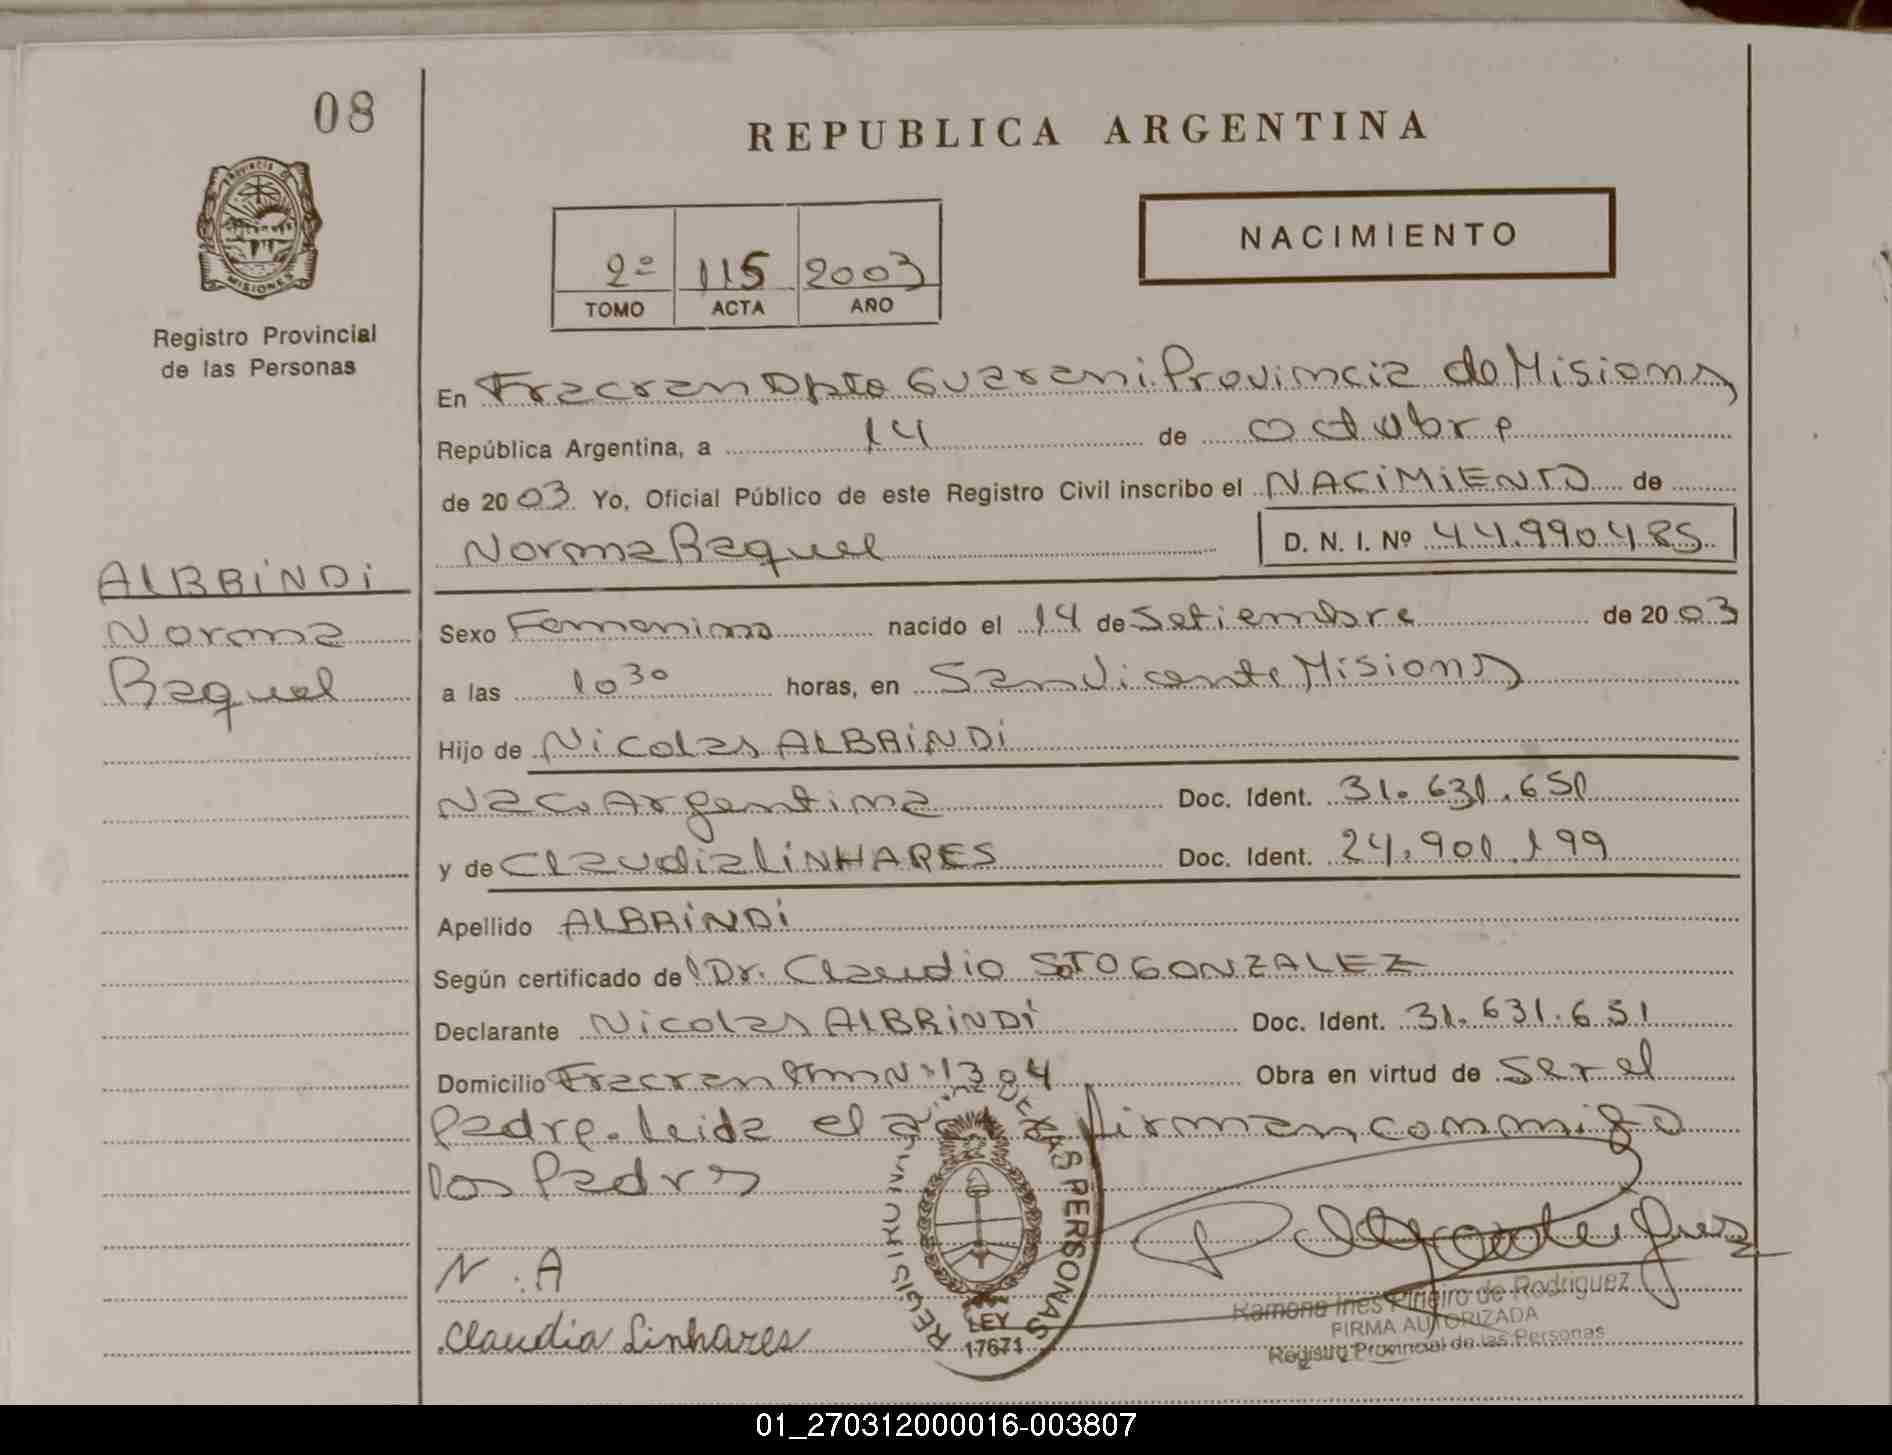 08
REPUBLICA ARGENTINA
PROVINCIA DE
MISIONES
Registro Provincial
de las Personas
NACIMIENTO
2º 115 2003
TOMO ACTA AÑO
En Fracran Dpto Guarani Provincia de Misiones
República Argentina, a 14 de octubre
de 2003 Yo, Oficial Público de este Registro Civil inscribo el NACIMIENTO de
Norma Raquel D. N. I. Nº 44.990.485
ALBRINDI
Norma
Raquel
Sexo Femenino nacido el 14 de Setiembre de 2003
a las 10 30 horas, en San Vicente Misiones
Hijo de Nicolas ALBRINDI
Nac. Argentina Doc. Ident. 31.631.651
y de Claudia LINHARES Doc. Ident. 24.901.199
Apellido ALBRINDI
Según certificado de l Dr. Claudio SOTO GONZALEZ
Declarante Nicolas ALBRINDI Doc. Ident. 31.631.651
Domicilio Fracran Km Nº 1304 Obra en virtud de ser el
padre. Leida el firman conmigo
los Padres
N. A
Claudia Linhares
DE LAS PERSONAS
LEY
17671
Ramona Ines Piñeiro de Rodriguez
FIRMA AUTORIZADA
Registro Provincial de las Personas
01_270312000016-003807